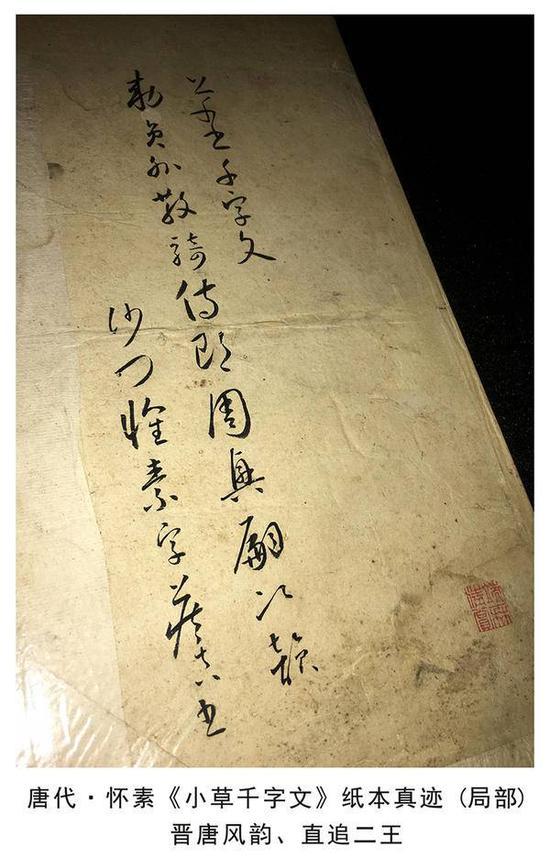 草書千字文
勅員外散騎侍郎周興嗣次韻
沙門懷素字藏真書
唐代·怀素《小草千字文》纸本真迹（局部）
晋唐风韵、直追二王